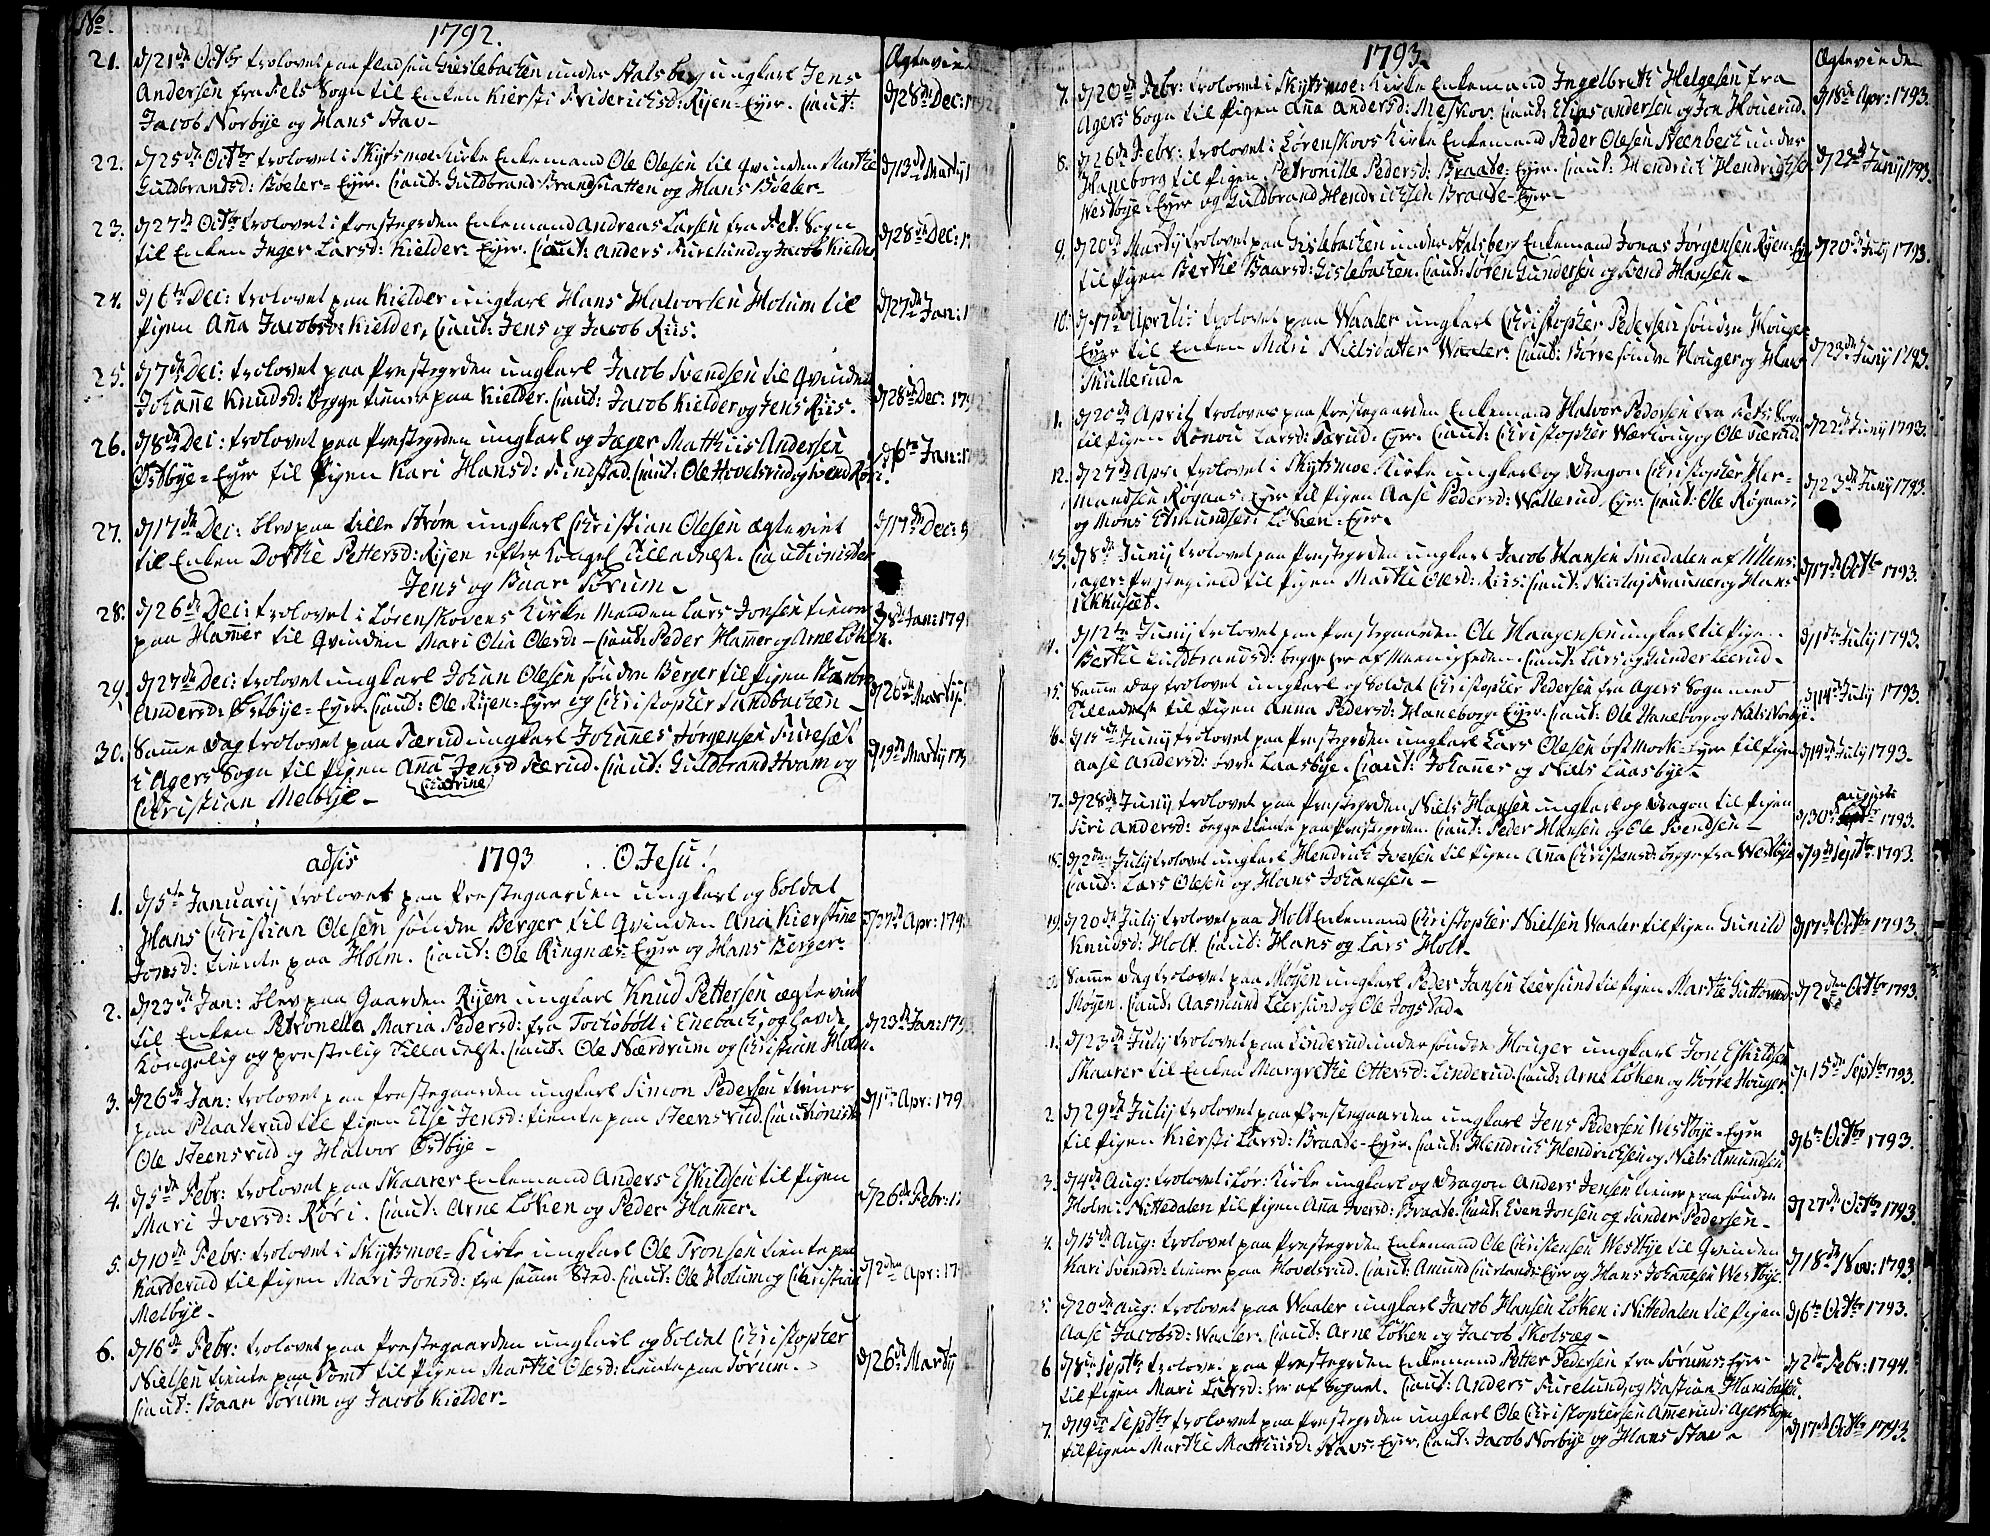 No.
1792.
Ægtevie
21. d 21de Octbr trolovet paa Pladsen Gislebachen under Stalsberg ungkarl Jens d 28de Dec: 1792
Andersen fra Fets Sogn til Enken Kiersti Friderichsd: Ryen-Eyer. Caut:
Jacob Norbye og Hans Stav-
22. d 25de Octbr trolovet i Skytsmoe Kirke Enkemand Ole Olesen til qvinden Marthe d 13de Martij 1
Guldbrandsd: Bøeler-Eyer. Caut: Guldbrand Brandsratten og Hans Bøeler-
23. d 27de Octbr trolovet i Prestegrden Enkemand Andreas Larsen fra Fet Sogn d 28de Dec: 1
til Enken Inger Larsd: Kielder-Eyer. Caut: Anders Furelund og Jacob Kielder
24. d 6te Dec: trolovet paa Kielder ungkarl Hans Halvorsen Holum til d 27de Jan: 1
Pigen Ana Jacobsd: Kielder, Caut: Jens og Jacob Riis.
25. d 7de Dec: trolovet paa Prestegrden ungkarl Jacob Svendsen til qvinden
Johane Knudsd: begge tiente paa Kielder. Caut: Jacob Kielder og Jens Riis. d 28de Dec: 179
26. d 8de Dec: trolovet paa Prestegrden ungkarl og Jæger Mathiis Andersen d 6te Jan: 1793
Østbye-Eyer til Pigen Kari Hansd: Finstad. Caut: Ole Hovelsrud og Svend Røri.
27. d 17de Dec: blev paa Lille Strøm ungkarl Christian Olesen ægteviet d 17de Dec: 9
til Enken Dorthe Pettersd: Ryen efter Kongel Tilladelse. Cautionister
Jens og Baar Sørum-
28. d 26de Dec: trolovet i Lørenskovens Kirke Manden Lars Jonsen tiener d 8de Jan: 179
paa Hamer til qvinden Mari Olia Olesd- Caut: Peder Hamer og Arne Løken.
29. d 27de Dec: trolovet ungkarl Johan Olesen søndre Berger til Pigen Barbra d 26de Martij
Andersd: Østbye-Eyer. Caut: Ole Ryen-Eyer og Christopher Sandbachen-
30. Samme Dag trolovet paa Særud ungkarl Johanes Jørgensen Furesæt d 19de Martij 179
i Agers Sogn til Pigen Ana Jensd Særud. Caut: Guldbrand Hvam og
Chatrine
Christian Melbye-
adsis 1793 O Jesu!
1. d 5te Januarij trolovet paa Prestegaarden ungkarl og Soldat
Hans Christian Olesen søndre Berger til qvinden Ana Kierstine d 27de Apr: 179
Jonsd: tiente paa Holm. Caut: Ole Ringnæs-Eyer og Hans Berger-
2. d 23de Jan: blev paa Gaarden Ryen ungkarl Knud Pettersen ægteviet
til Enken Petronella Maria Pedersd: fra Tochsböll i Enebach, og havde d 23de Jan: 179
Kongelig og Prestelig Tilladelse. Caut: Ole Nærdrum og Christian Holm.
3. d 26de Jan: trolovet paa Prestegaarden ungkarl Simon Pedersen tiener d 1ste Apr: 179
paa Plaaterud til Pigen Else Jensd: tiente paa Steensrud. Cautionister
Ole Steensrud og Halvor Østbye-
4. d 5te Febr: trolovet paa Skaarer Enkemand Anders Eskildsen til Pigen d 26de Febr: 17
Mari Iversd: Röri. Caut: Arne Løken og Peder Hamer.
5. d 10de Febr: trolovet i Skytsmoe-Kirke ungkarl Ole Tronsen tiente paa d 2den Apr: 17
Harderud til Pigen Mari Jonsd: fra same Sted. Caut: Ole Holum og Christian
Melbye-
6. d 16de Febr: trolovet paa Prestegaarden ungkarl og Soldat Christopher d 26de Martij
Nielsen tiente paa Tomt til Pigen Marthe Olesd: tiente paa Sørum.-
Caut: Baar Sørum og Jacob Kielder-
1793.
Ægteviede
7. d 20de Febr: trolovet i Skytsmoe-Kirke Enkemand Ingelbreth Helgesen fra d 18de Apr: 1793.
Agers Sogn til Pigen Ana Andersd: Meskov: Caut: Elias Andersen og Jon Houerud.
8. d 26de Febr: trolovet i Lørenskovs Kirke Enkemand Peder Olesen Steenbech under d 29de Junij 1793.
Haneborg til Pigen Petronille Pedersd: Braade-Eyer. Caut: Hendrich Hendrichsen
Westbye-Eyer og Guldbrand Hendrichsen Braade-Eyer-
9. d 20de Martij trolovet paa Gislebachen under Stalsberg Enkemand Jonas Jørgensen Ryen-Eyer d 20de July 1793.
til Pigen Berthe Baarsd: Gislebachen. Caut: Søren Gundersen og Svend Hansen-
10. d 17de Aprilii trolovet paa Waaler ungkarl Christopher Pedersen søndre Houger- d 23de Junij 1793.
Eyer til Enken Mari Nielsdatter Waaler. Caut: Børre søndre Houger og Hans
Skillerud-
11. d 20de April trolovet paa Prestegaarden Enkemand Halvor Pedersen fra Fets Sogn d 22de Junij 1793.
til Pigen Ronou Larsd: Særud-Eyer. Caut: Christopher Wærhoug og Ole Særud
12. d 27de Apri trolovet i Skytsmoe Kirke ungkarl og Dragon Christopher Her- d 23de Junij 1793.
mandsen Røgnas-Eyer til Pigen Aase Pedersd: Wallerud-Eyer: Caut: Ole Røgnas,
og Mons Edmundsen Løken-Eyer.
13. d 8de Junij trolovet paa Prestegrden ungkarl Jacob Hansen Smedalen af Ullens- d 17de Octbr 1793.
ager Prestegield til Pigen Marthe Olesd: Riis: Caut: Nicolaj Frauner og Hans
Ukkusæt.
14. d 12te Junij trolovet paa Prestegaarden Ole Haagensen ungkarl til Pigen d 1ste July 1793.
Berthe Guldbrandsd: begge her af Meenigheden. Caut: Lars og Gunder Leerud-
15. Samme Dag trolovet ungkarl og Soldat Christopher Pedersen fra Agers Sogn med d 14de July 1793.
Tilladelse til Pigen Anna Pedersd: Haneborg-Eyer. Caut: Ole Haneborg og Niels Norbye.
16. d 15de Junij trolovet paa Prestegrden ungkarl Lars Olesen øst Mork-Eyer til Pigen d 19de July 1793.
Aase Andersd: Laasbye. Caut: Johanes og Niels Laasbye-
17. d 28de Junij trolovet paa Prestegrden Niels Hansen ungkarl og Dragon til Pigen augusti d 30de 1793.
Siri Andersd: begge tiente paa Prestegrden. Caut: Peder Hansen og Ole Svendsen-
18. d 2den July trolovet ungkarl Hendrich Iversen til Pigen Ana Christensd: begge fra Westbye d 9de Septbr 1793.
Caut: Lars Olesen og Hans Johanesen-
19. d 20de July trolovet paa Holt Enkemand Christopher Nielsen Waaler til Pigen Gunild d 17de Octbr 1793.
Knudsd: Holt. Caut: Hans og Lars Holt.
20. Same Dag trolovet paa Mosen ungkarl Peder Jansen Leersund til Pigen Marthe Guttormsd: d 2den Octbr 1793.
Mogen. Caut: Aasmund Leersund og Ole Jogstad.
1. d 23de July trolovet paa Linderud under søndre Houger ungkarl Jon Eskildsen d 15de Septbr 1793.
Skaarer til Enken Margrethe Ottersd: Linderud. Caut: Arne Løken og Børre Houger.
2. d 29de July trolovet paa Prestegaarden ungkarl Jens Pedersen Westbye-Eyer d 6te Octbr 1793.
til Pigen Kiersti Larsd: Braade-Eyer. Caut: Hendrich Hendrichsen og Niels Amundsen
3. d 4de Aug: trolovet i Lør: Kirke ungkarl og Dragon Anders Jensen tiener paa søndre d 27de Octbr 1793.
Holm i Nittedalen til Pigen Ana Iversd: Braate. Caut: Even Jonsen og Sander Pedersen-
4. d 15de Aug: trolovet paa Prestegrden Enkemand Ole Christensen Westbye til qvinden d 18de Nov: 1793.
Kari Svendsd: tiener paa Hovelsrud. Caut: Amund Curlands-Eyer og Hans Johanesen Westbye
25. d 20de Aug: trolovet paa Waaler ungkarl Jacob Hansen Løken i Nittedalen til Pigen d 6te Octbr 1793.
Aase Jacobsd: Waaler. Caut: Arne Løken og Jacob Skolsæg-
26 d 8de Septbr trolovet paa Prestegrden Enkemand Petter Pedersen fra Sørums-Eyer- d 2den Febr: 1794.
til Pigen Mari Larsd: her af Sognet. Caut: Anders Furelund, og Bastian Hanibalsen.
7. d 19de Septbr trolovet paa Prestegrden ungkarl Ole Christophersen Amerud i Agers Sogn d 17de Octbr 1793.
til Pigen Marthe Mathiisd: Stavs-Eyer, Caut: Jacob Norbye og Hans Stav-